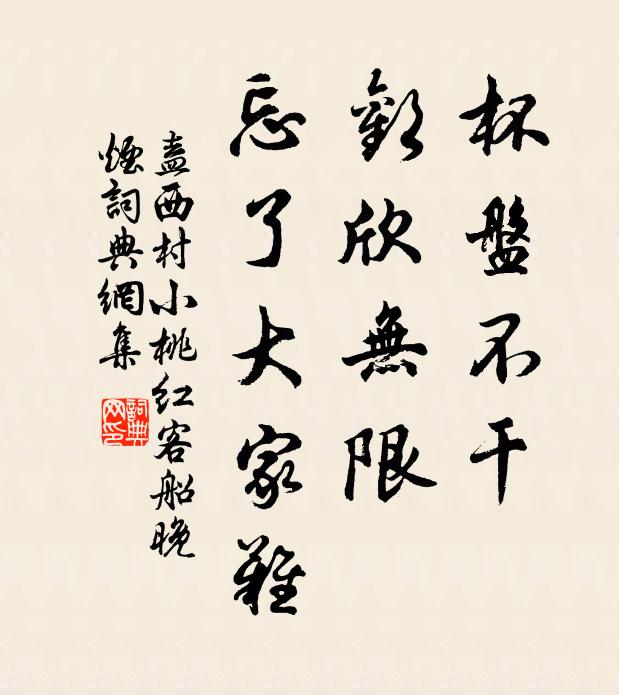 杯盤不干
歡欣無限
忘了大家難
盍西村小桃紅客船晚
煙詞典網集
詞典網印